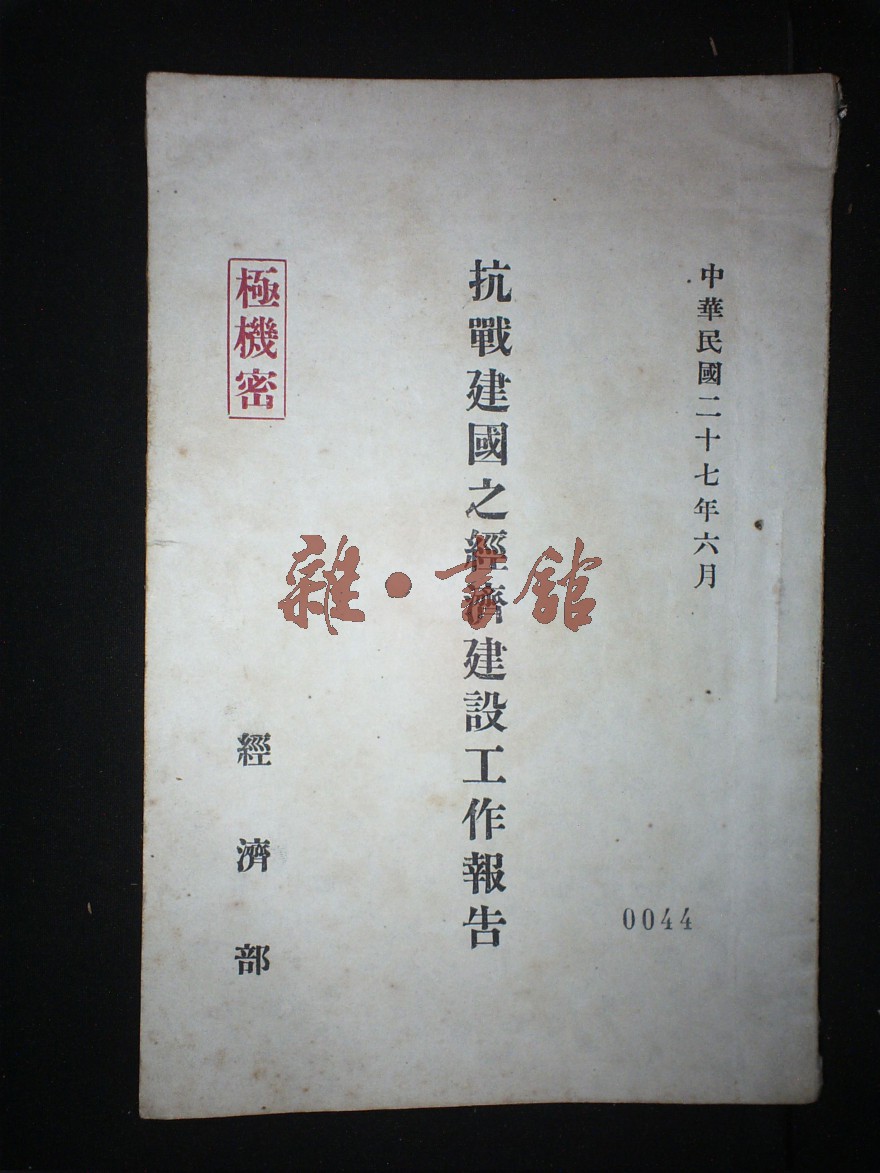 中華民國二十七年六月
0044
抗戰建國之經濟建設工作報告
極機密
經濟部
雜·書館